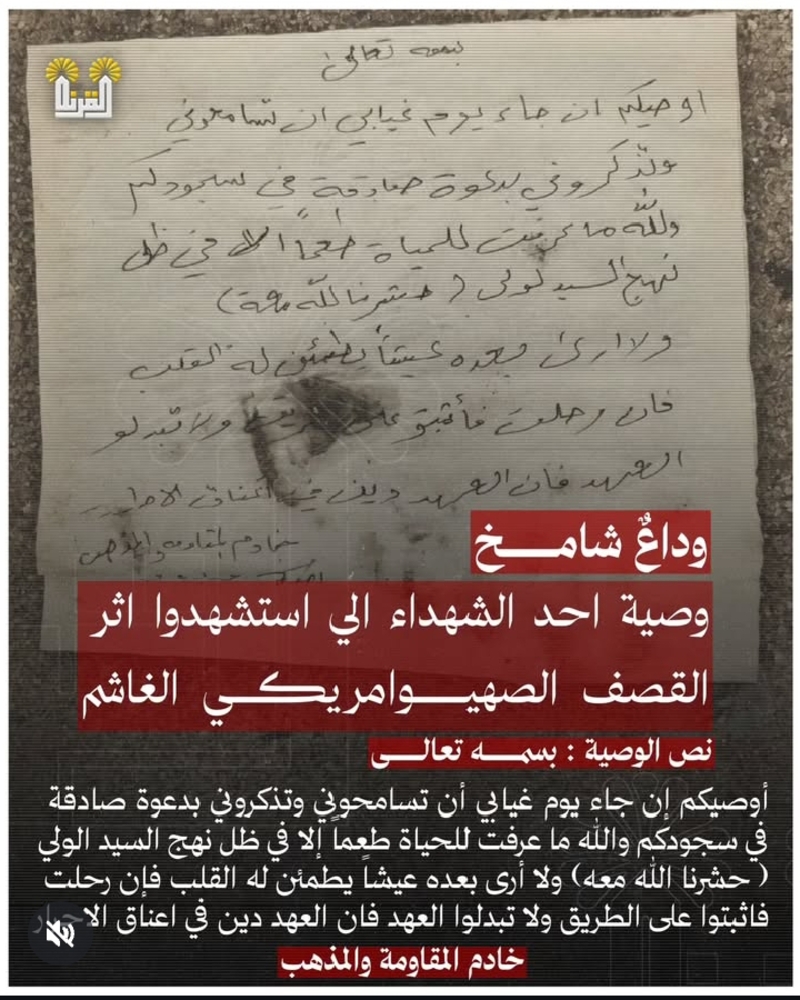 القرنة
بسمه تعالى
اوصيكم ان جاء يوم غيابي ان تسامحوني
وتذكروني بدعوة صادقة في سجودكم
والله ما عرفت للحياة طعماً الا في ظل
نهج السيد لولي (حشرنا الله معه)
ولا ارى بعده عيشاً يطمئن له القلب
فان رحلت فأثبتو على ولا تبدلو
العهد فان العهد دين في اعناق الاحرار
خادم المقاومه والمذهب
وداعٌ شامـــخ
وصية احد الشهداء الي استشهدوا اثر
القصف الصهيـــوامريكـــي الغاشم
نص الوصية : بسمـــه تعالـــى
أوصيكم إن جاء يوم غيابي أن تسامحوني وتذكروني بدعوة صادقة
في سجودكم والله ما عرفت للحياة طعماً إلا في ظل نهج السيد الولي
( حشرنا الله معه) ولا أرى بعده عيشاً يطمئن له القلب فإن رحلت
فاثبتوا على الطريق ولا تبدلوا العهد فان العهد دين في اعناق
خادم المقاومة والمذهب